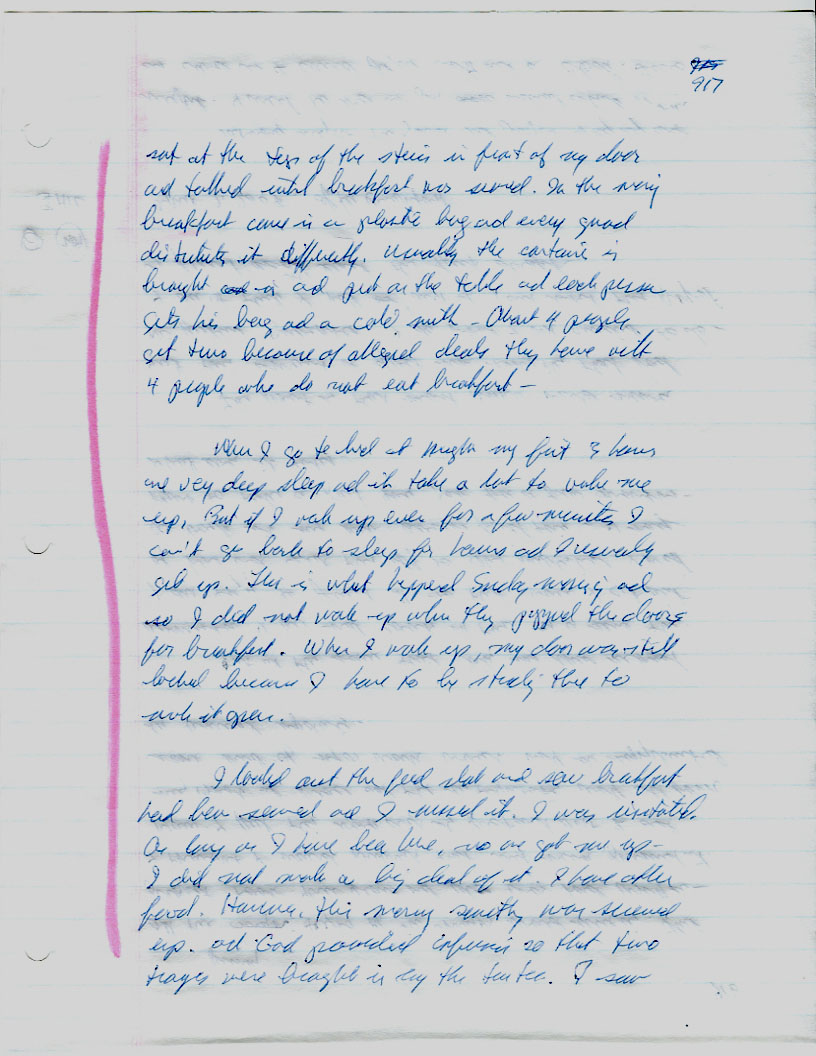 917
sat at the of the stairs in front of my door
and talked until breakfast was served. In the morning
breakfast came in a plastic bag and every guard
distributes it differently. Usually the container is
brought in and put on the table and each person
gets his bag and a cold milk - About 4 people
get two because of alleged deals they have with
4 people who do not eat breakfast -
When I go to bed at night my first 3 hours
are very deep sleep and it take a lot to wake me
up. But if I wake up even for a few minutes I
can't go back to sleep for hours and I usually
get up. This is what happened Sunday morning and
so I did not wake up when they popped the doors
for breakfast. When I woke up, my door was still
locked because I have to be there to
it open.
I looked out the food slot and saw breakfast
had been served and I missed it. I was irritated.
As long as I have been here, no one got me up -
I did not make a big deal of it. I have other
food. However, this morning was screwed
up. and God provided confusion so that two
trays were brought in by the trustee. I saw